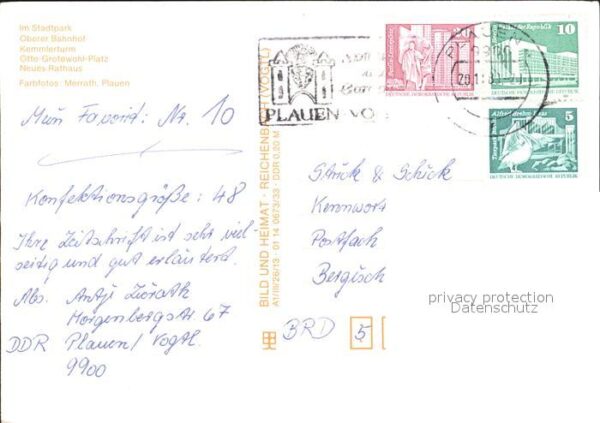 Im Stadtpark
Oberer Bahnhof
Kemmlerturm
Otto-Grotewohl-Platz
Neues Rathaus
Farbfotos: Merrath, Plauen
Mein Favorit: Nr. 10
Konfektionsgröße: 48
Ihre Zeitschrift ist sehr viel-
seitig und gut erläutert.
Abs. Antje
Morgenbergstr 67
DDR Plauen/Vogtl.
9900
BILD UND HEIMAT · REICHENBACH (VOGTL)
A1/III/26/13 · 01 14 0673/33 · DDR 0,20 M
PLAUEN VO
PLAUEN
20
DEUTSCHE DEMOKRATISCHE REPUBLIK
10
DEUTSCHE DEMOKRATISCHE REPUBLIK
5
DEUTSCHE DEMOKRATISCHE REPUBLIK
Strick & Schick
Kennwort
Postfach
Bergisch
BRD 5
privacy protection
Datenschutz